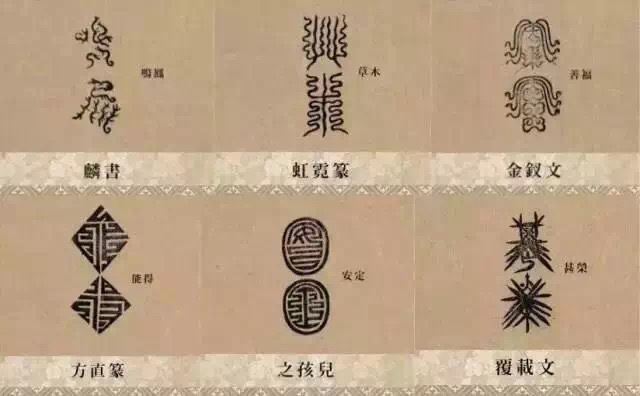 鳴鳳
麟書
草木
虹霓篆
善福
金釵文
能得
方直篆
安定
之孩兒
甚榮
覆載文